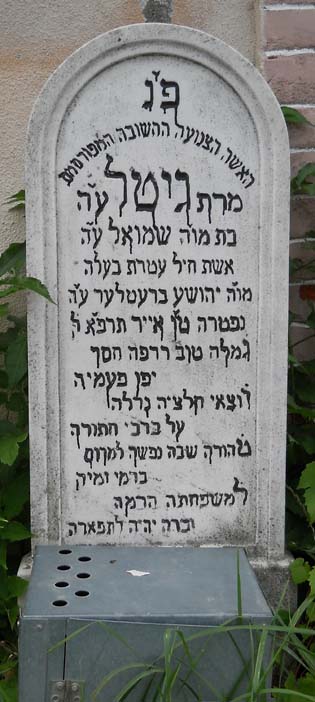 פ״נ
האשה הצנועה החשובה המפורסמת
מרת גיטל ע״ה
בת מו״ה שמואל ע״ה
אשת חיל עטרת בעלה
מו״ה יהושע ע״ה
נפטרה ט״ו אייר תרפ״א ל
גמלה טוב רדפה חסך
יפן פעמיה
יוצאי חלציה גדלה
על ברכי
טהורה שבה נפשך למקום
ברמי ומיק
למשפחתה הרמה
וברה יהיה לתפארה